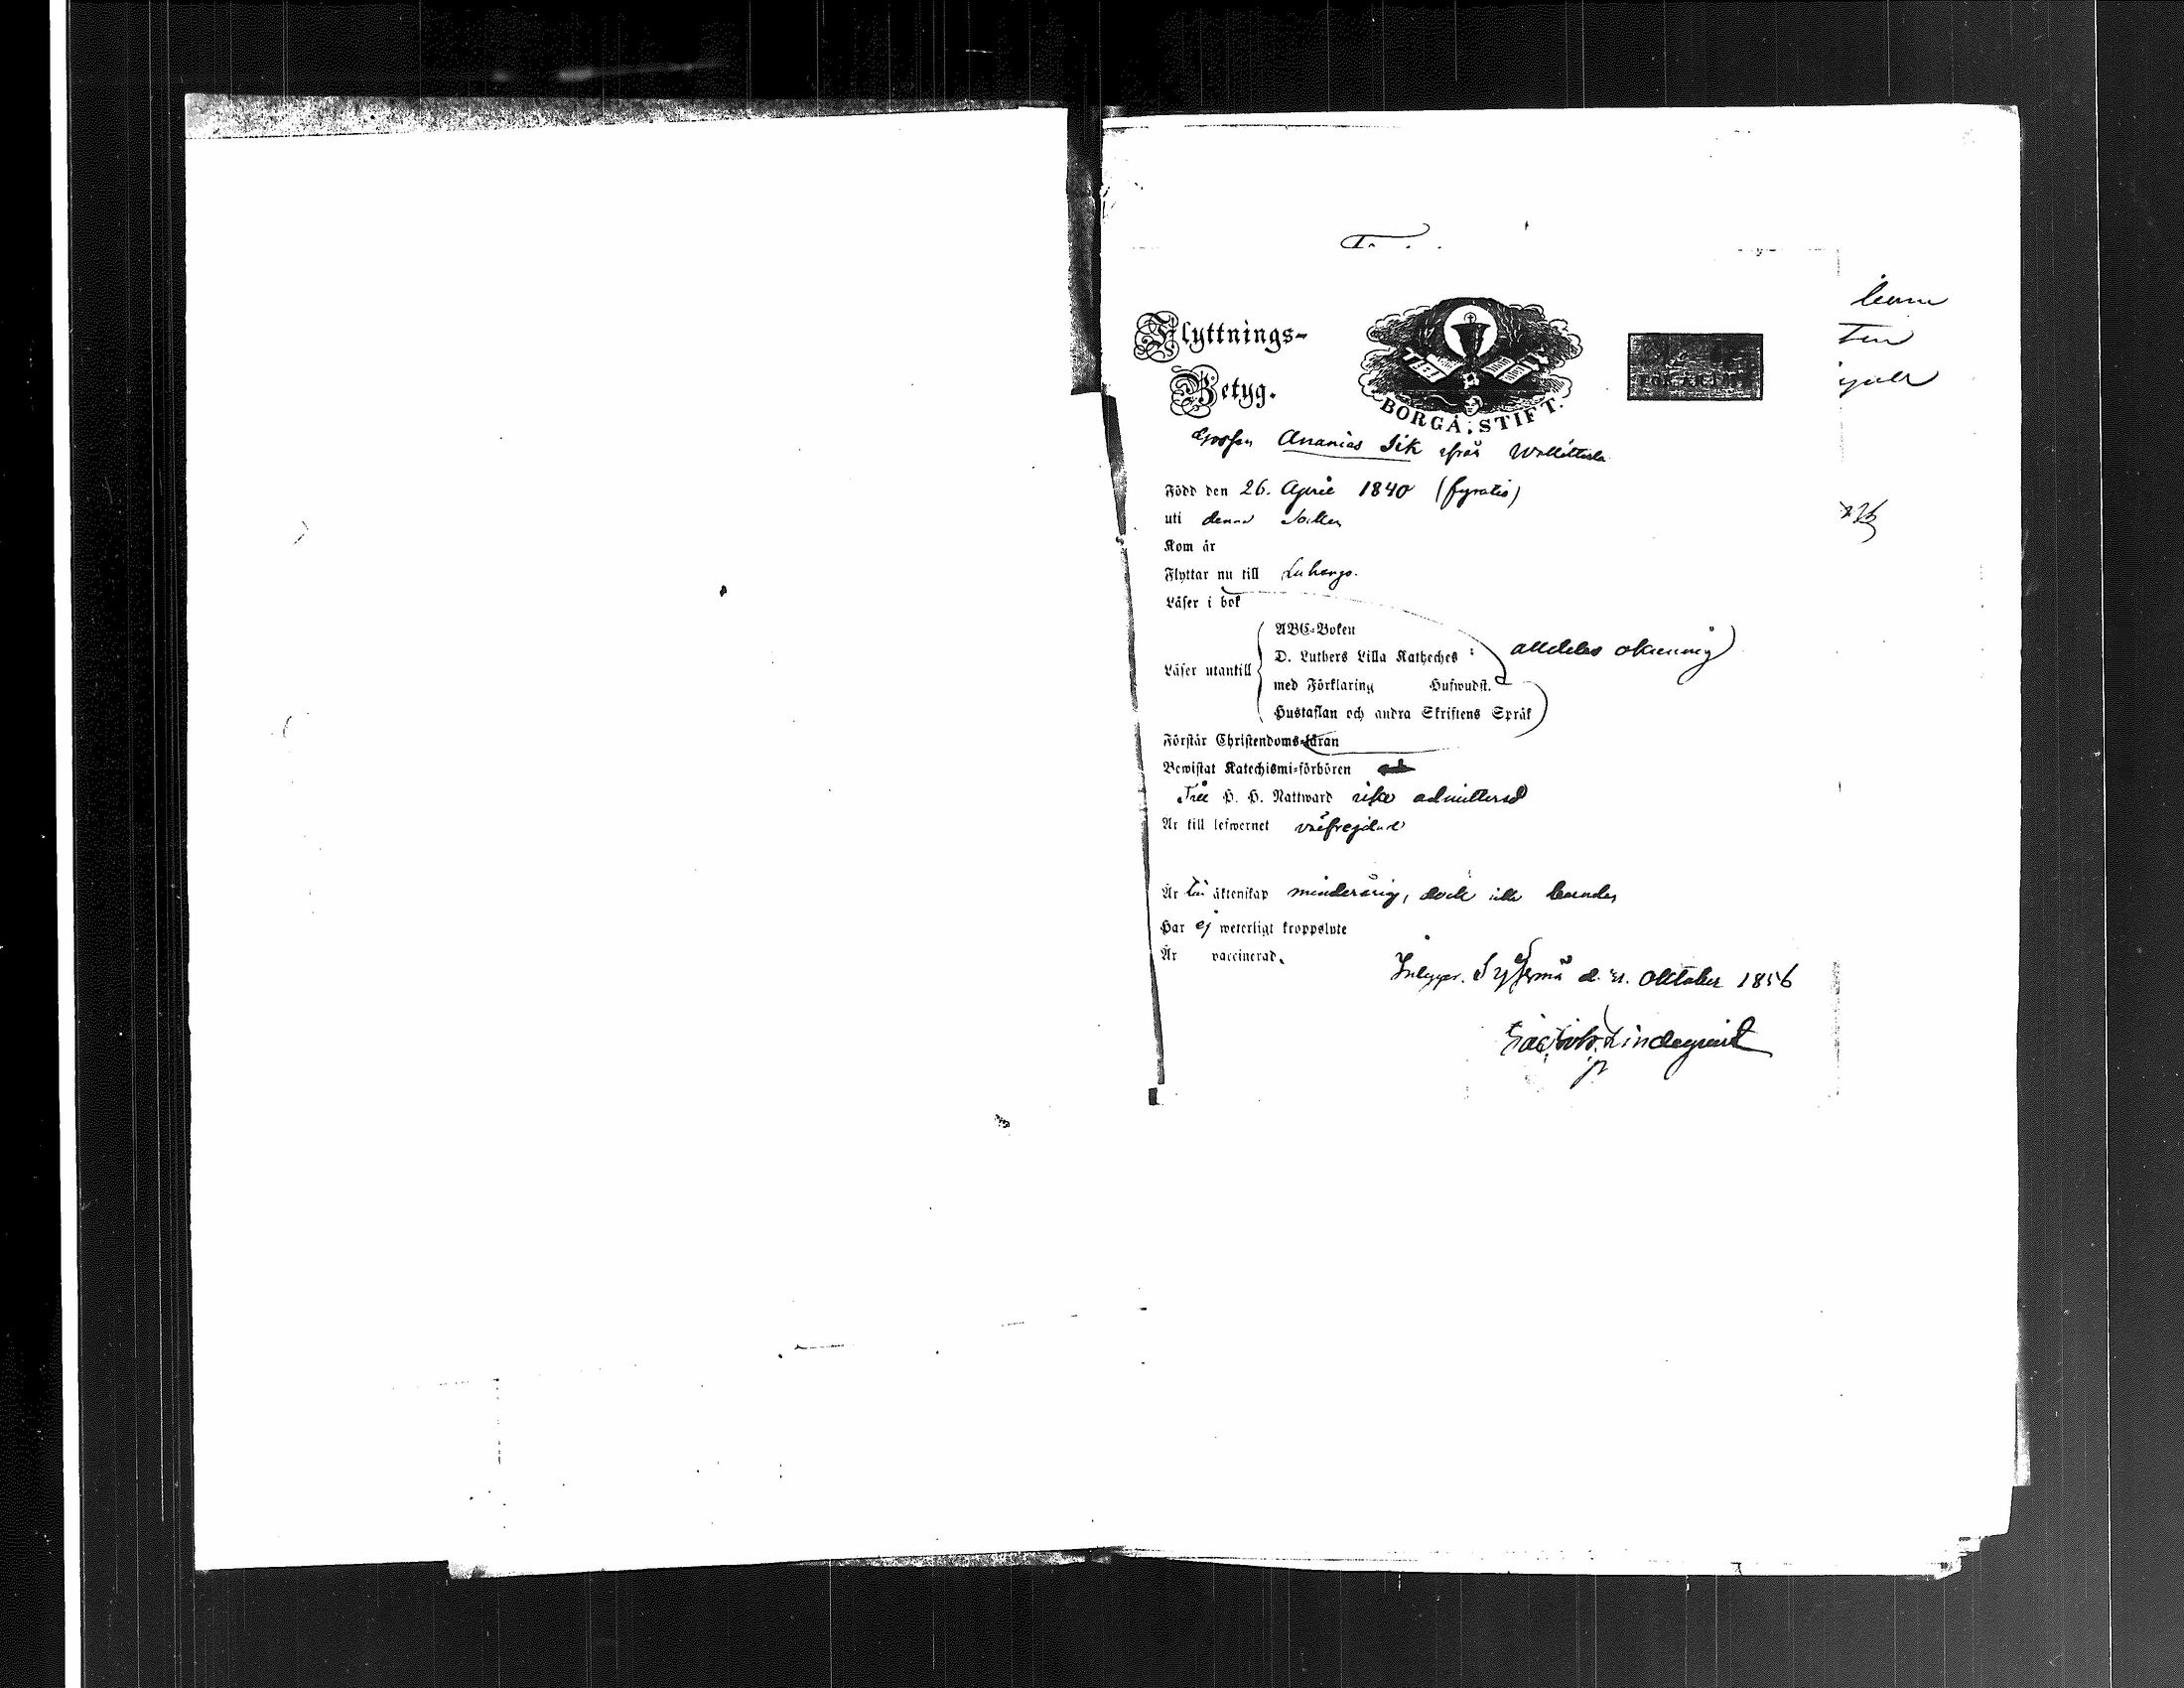 Flyttnings-
Betyg.
BORGÅ STIFT.
Gossen Ananias Sik ifrån
Född den 26. April 1840 (fyratio)
uti denna Socken
Kom år
Flyttar nu till Luhango.
Läser i bok
Läser utantill
ABC-Boken
D. Luthers Lilla Katheches :
med Förklaring Hufwudst.
Hustaflan och andra Skriftens Språk
alldeles okunnig
Förstår Christendoms-läran
Bewistat Katechismi-förhören
Till H. H. Nattward icke admitterad
Är till lefwernet välfrejdad
Är till äktenskap minderårig, dock icke bunden
Har ej weterligt kroppslyte
Är vaccinerad.
Sysmä d. 21. Oktober 1856
Lindequist